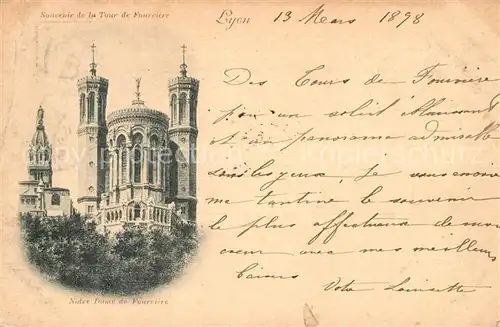 Souvenir de la Tour de Fourvière
Lyon 13 Mars 1898
Des Tours de Fourvière
par un soleil
et un panorama admirable
sous les yeux, je vous envoie
ma tantine le souvenir
le plus affectueux de mon
cœur avec mes meilleurs
baisers Votre
Notre Dame de Fourvière